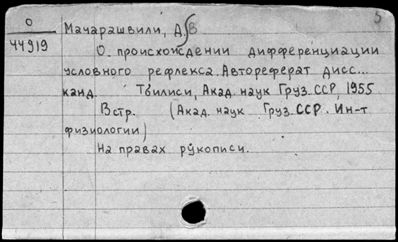 О
44919
Мачарашвили, Д
5
О происхождении дифференциации
условного рефлекса. Автореферат дисс...
канд. Тбилиси, Акад. наук Груз. ССР, 1955
Встр. (Акад. наук Груз. ССР. Ин-т
физиологии)
На правах рукописи.